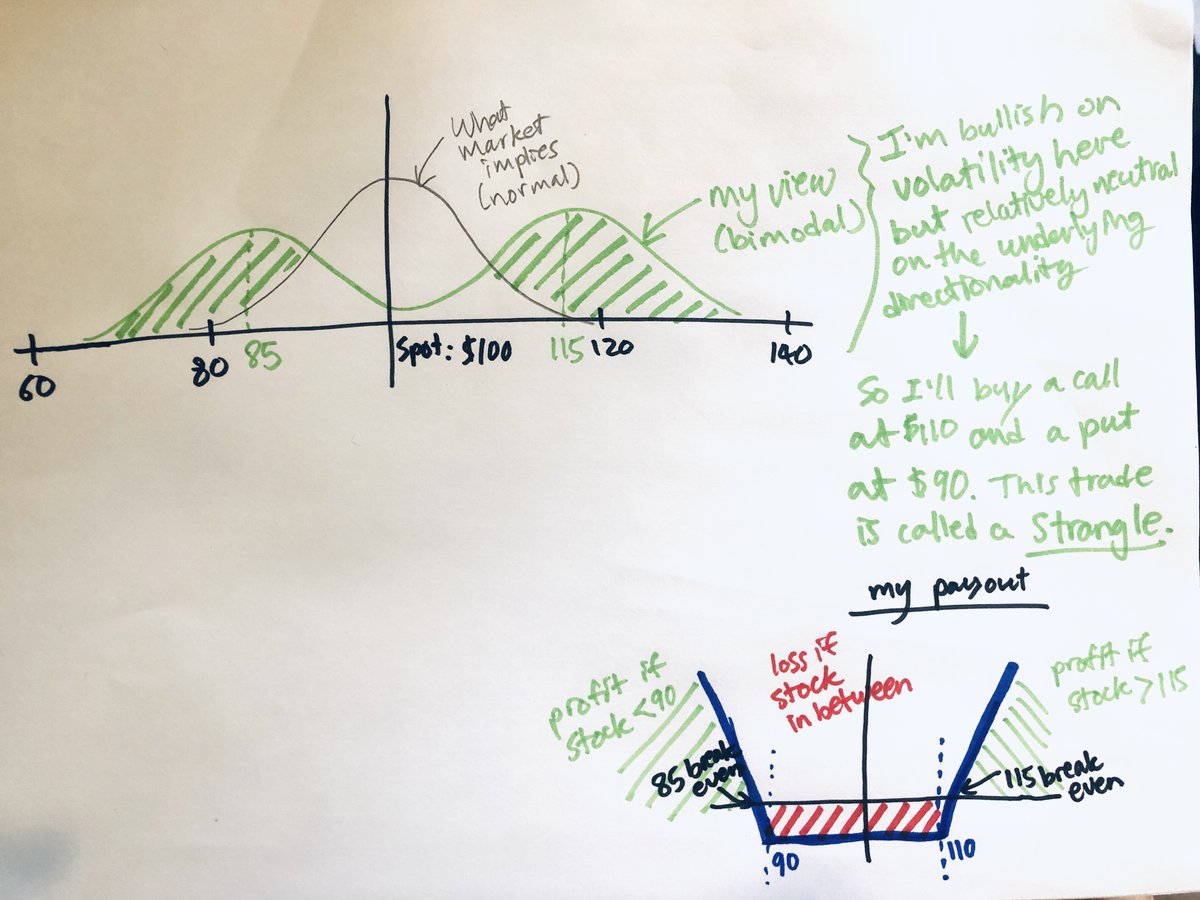 What
market
implies
(normal)
my view
(bimodal)
I'm bullish on
volatility here
but relatively neutral
on the underlying
directionality
60
80
85
Spot: $100
115
120
140
So I'll buy a call
at $110 and a put
at $90. This trade
is called a Strangle.
my payout
profit if
stock <90
loss if
stock
in between
profit if
stock >115
85 break
even
115 break
even
90
110